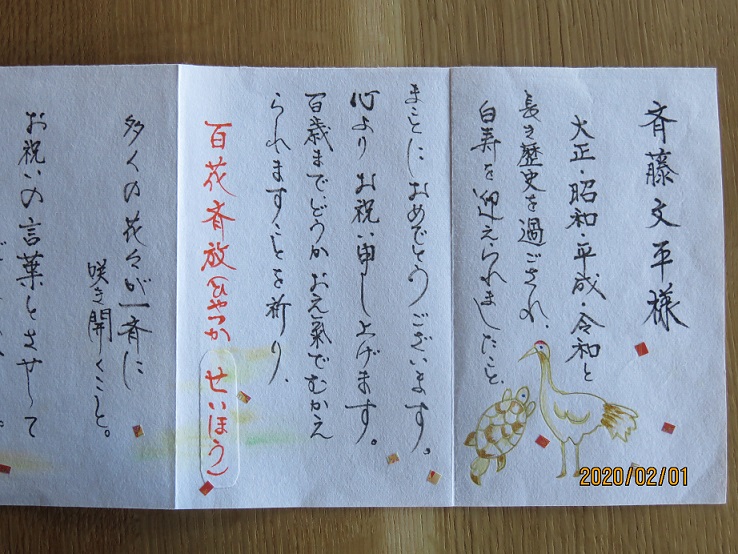 斉藤文平様
大正・昭和・平成・令和と
長き歴史を過ごされ、
白寿を迎えられましたこと、
まことにおめでとうございます。
心よりお祝い申し上げます。
百歳まで、どうかお元氣でむかえ
られますことを祈り、
百花斉放(ひゃっか せいほう)
多くの花々が一斉に
咲き開くこと。
お祝いの言葉とさせて
2020/02/01